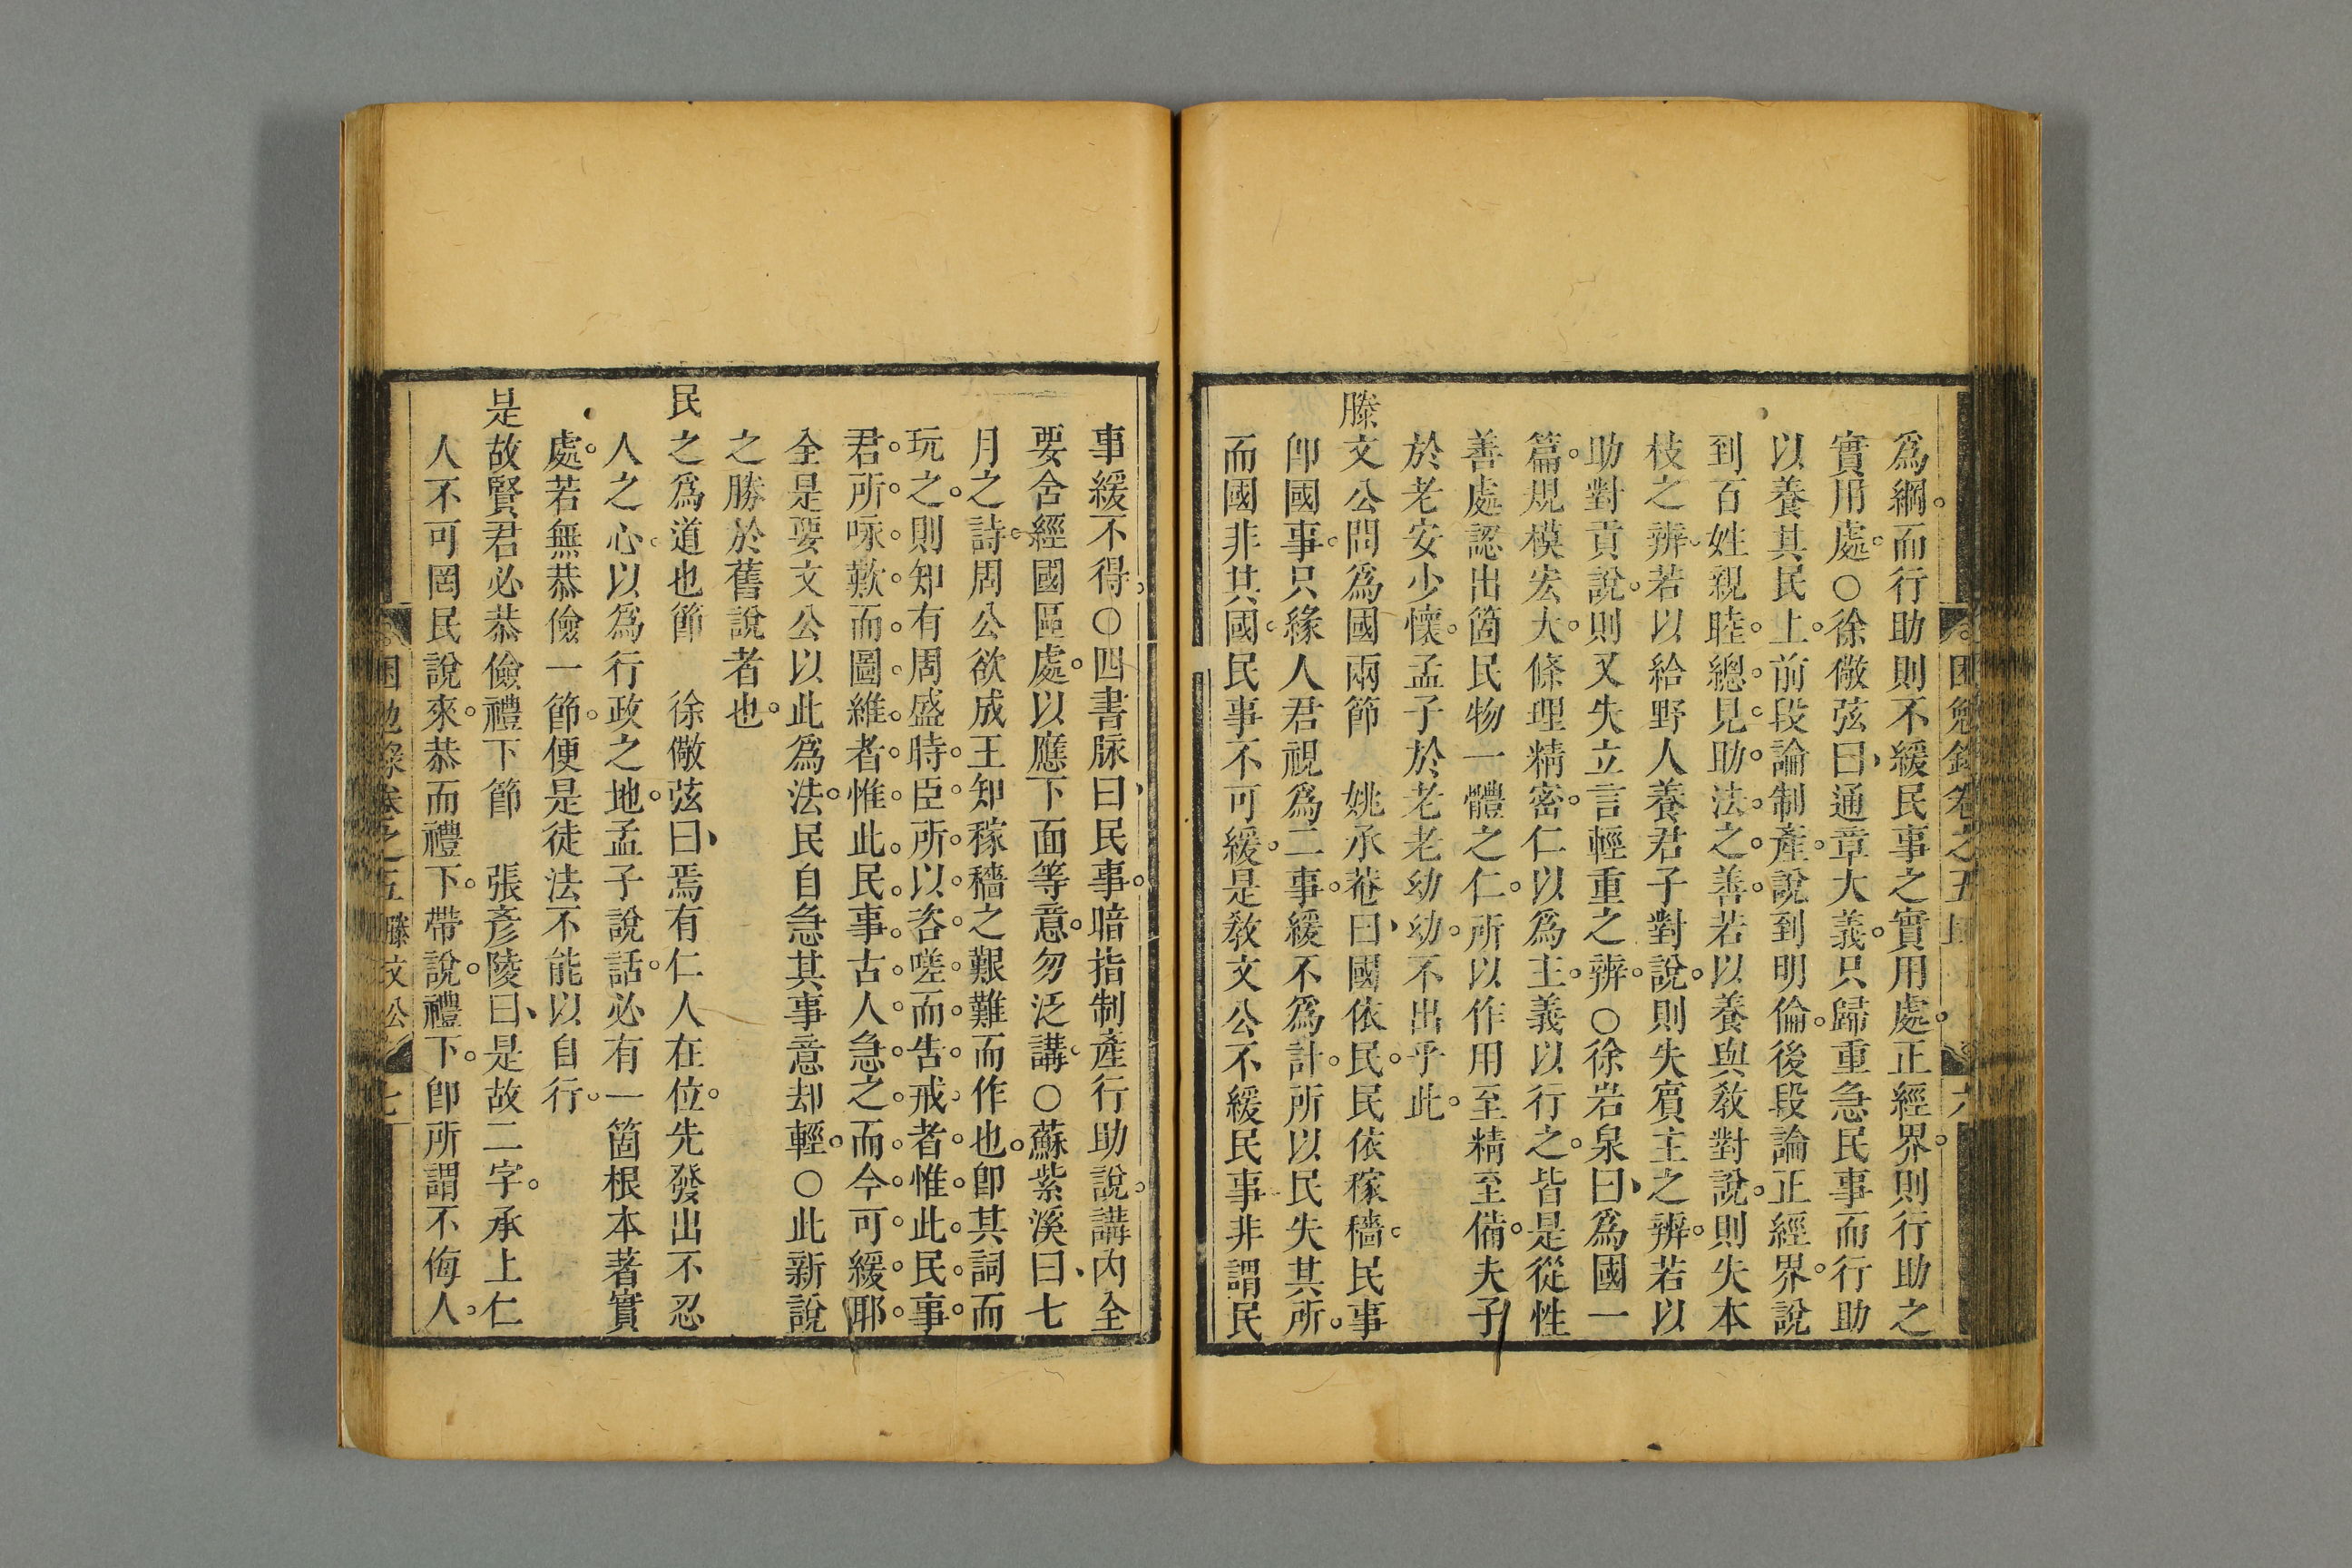 爲綱。而行助則不緩民事之實用處。正經界。則行助之
實用處。○徐儆弦曰、通章大義。只歸重急民事而行助
以養其民上。前段論制產。說到明倫。後段論正經界。說
到百姓親睦。總見助法之善。若以養與敎對說。則失本
枝之辨。若以給野人養君子對說。則失賓主之辨。若以
助對貢說。則又失立言輕重之辨。○徐岩泉曰、爲國一
篇。規模宏大。條理精密。仁以爲主。義以行之。皆是從性
善處認出箇民物一體之仁。所以作用至精至備。夫子
於老安少懷。孟子於老老幼幼。不出乎此。
滕文公問爲國兩節　姚承菴曰、國依民。民依稼穡。民事
卽國事。只緣人君視爲二事。緩不爲計。所以民失其所。
而國非其國。民事不可緩。是敎文公不緩民事。非謂民
事緩不得。○四書脉曰、民事。暗指制產行助說。講內全
要含經國區處。以應下面等意。勿泛講。○蘇紫溪曰、七
月之詩。周公欲成王知稼穡之艱難而作也。卽其詞而
玩之。則知有周盛時。臣所以咨嗟而告戒者。惟此民事。
君所咏歎而圖維者。惟此民事。古人急之。而今可緩耶。
全是要文公以此爲法。民自急其事意却輕。○此新說
之勝於舊說者也。
民之爲道也節　徐儆弦曰、焉有仁人在位。先發出不忍
人之心。以爲行政之地。孟子說話。必有一箇根本著實
處。若無恭儉一節。便是徒法不能以自行。
是故賢君必恭儉禮下節　張彥陵曰、是故二字。承上仁
人不可罔民說來。恭而禮下。帶說。禮下。卽所謂不侮人。
困勉錄卷之五 滕文公 七